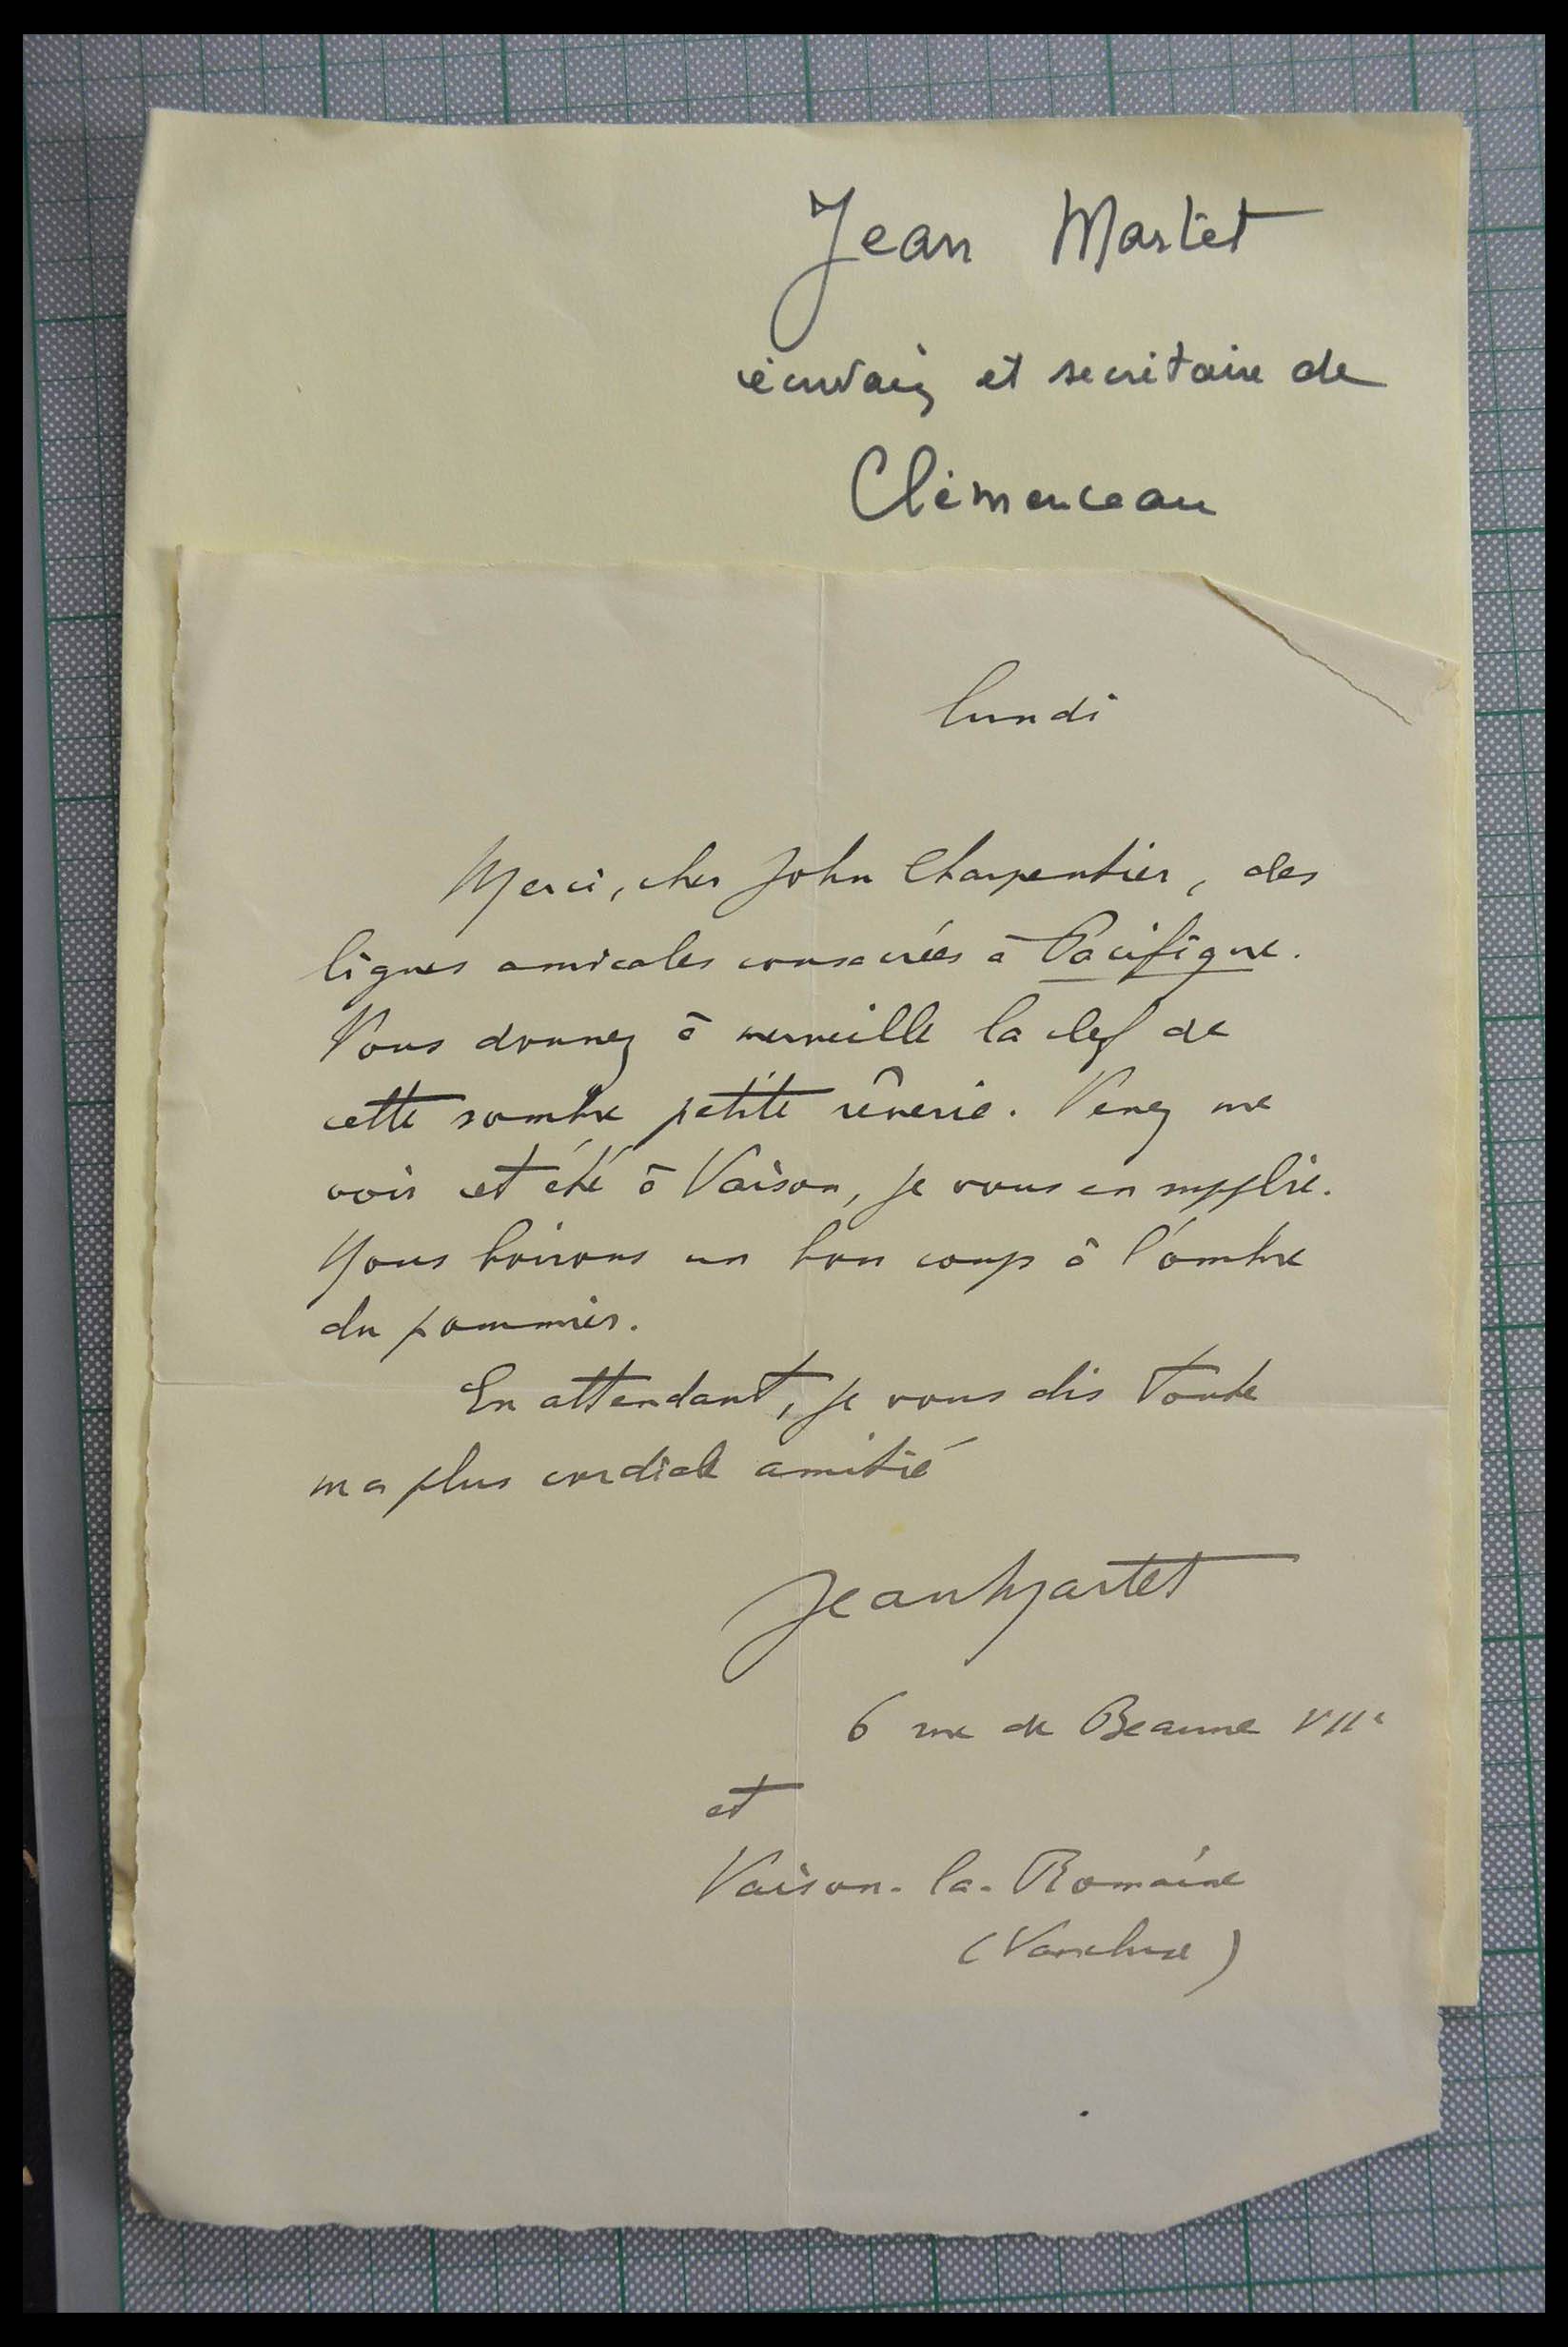 Jean Martet
écrivain et secrétaire de
Clémenceau
lundi
Merci, cher John Charpentier, des
lignes amicales consacrées à Pacifique.
Vous donnez à merveille la clef de
cette sombre petite rêverie. Venez me
voir cet été à Vaison, je vous en supplie.
Nous boirons un bon coup à l'ombre
du pommier.
En attendant, je vous dis toute
ma plus cordiale amitié
Jean Martet
6 rue de Beaune VIIe
et
Vaison-la-Romaine
(Vaucluse)